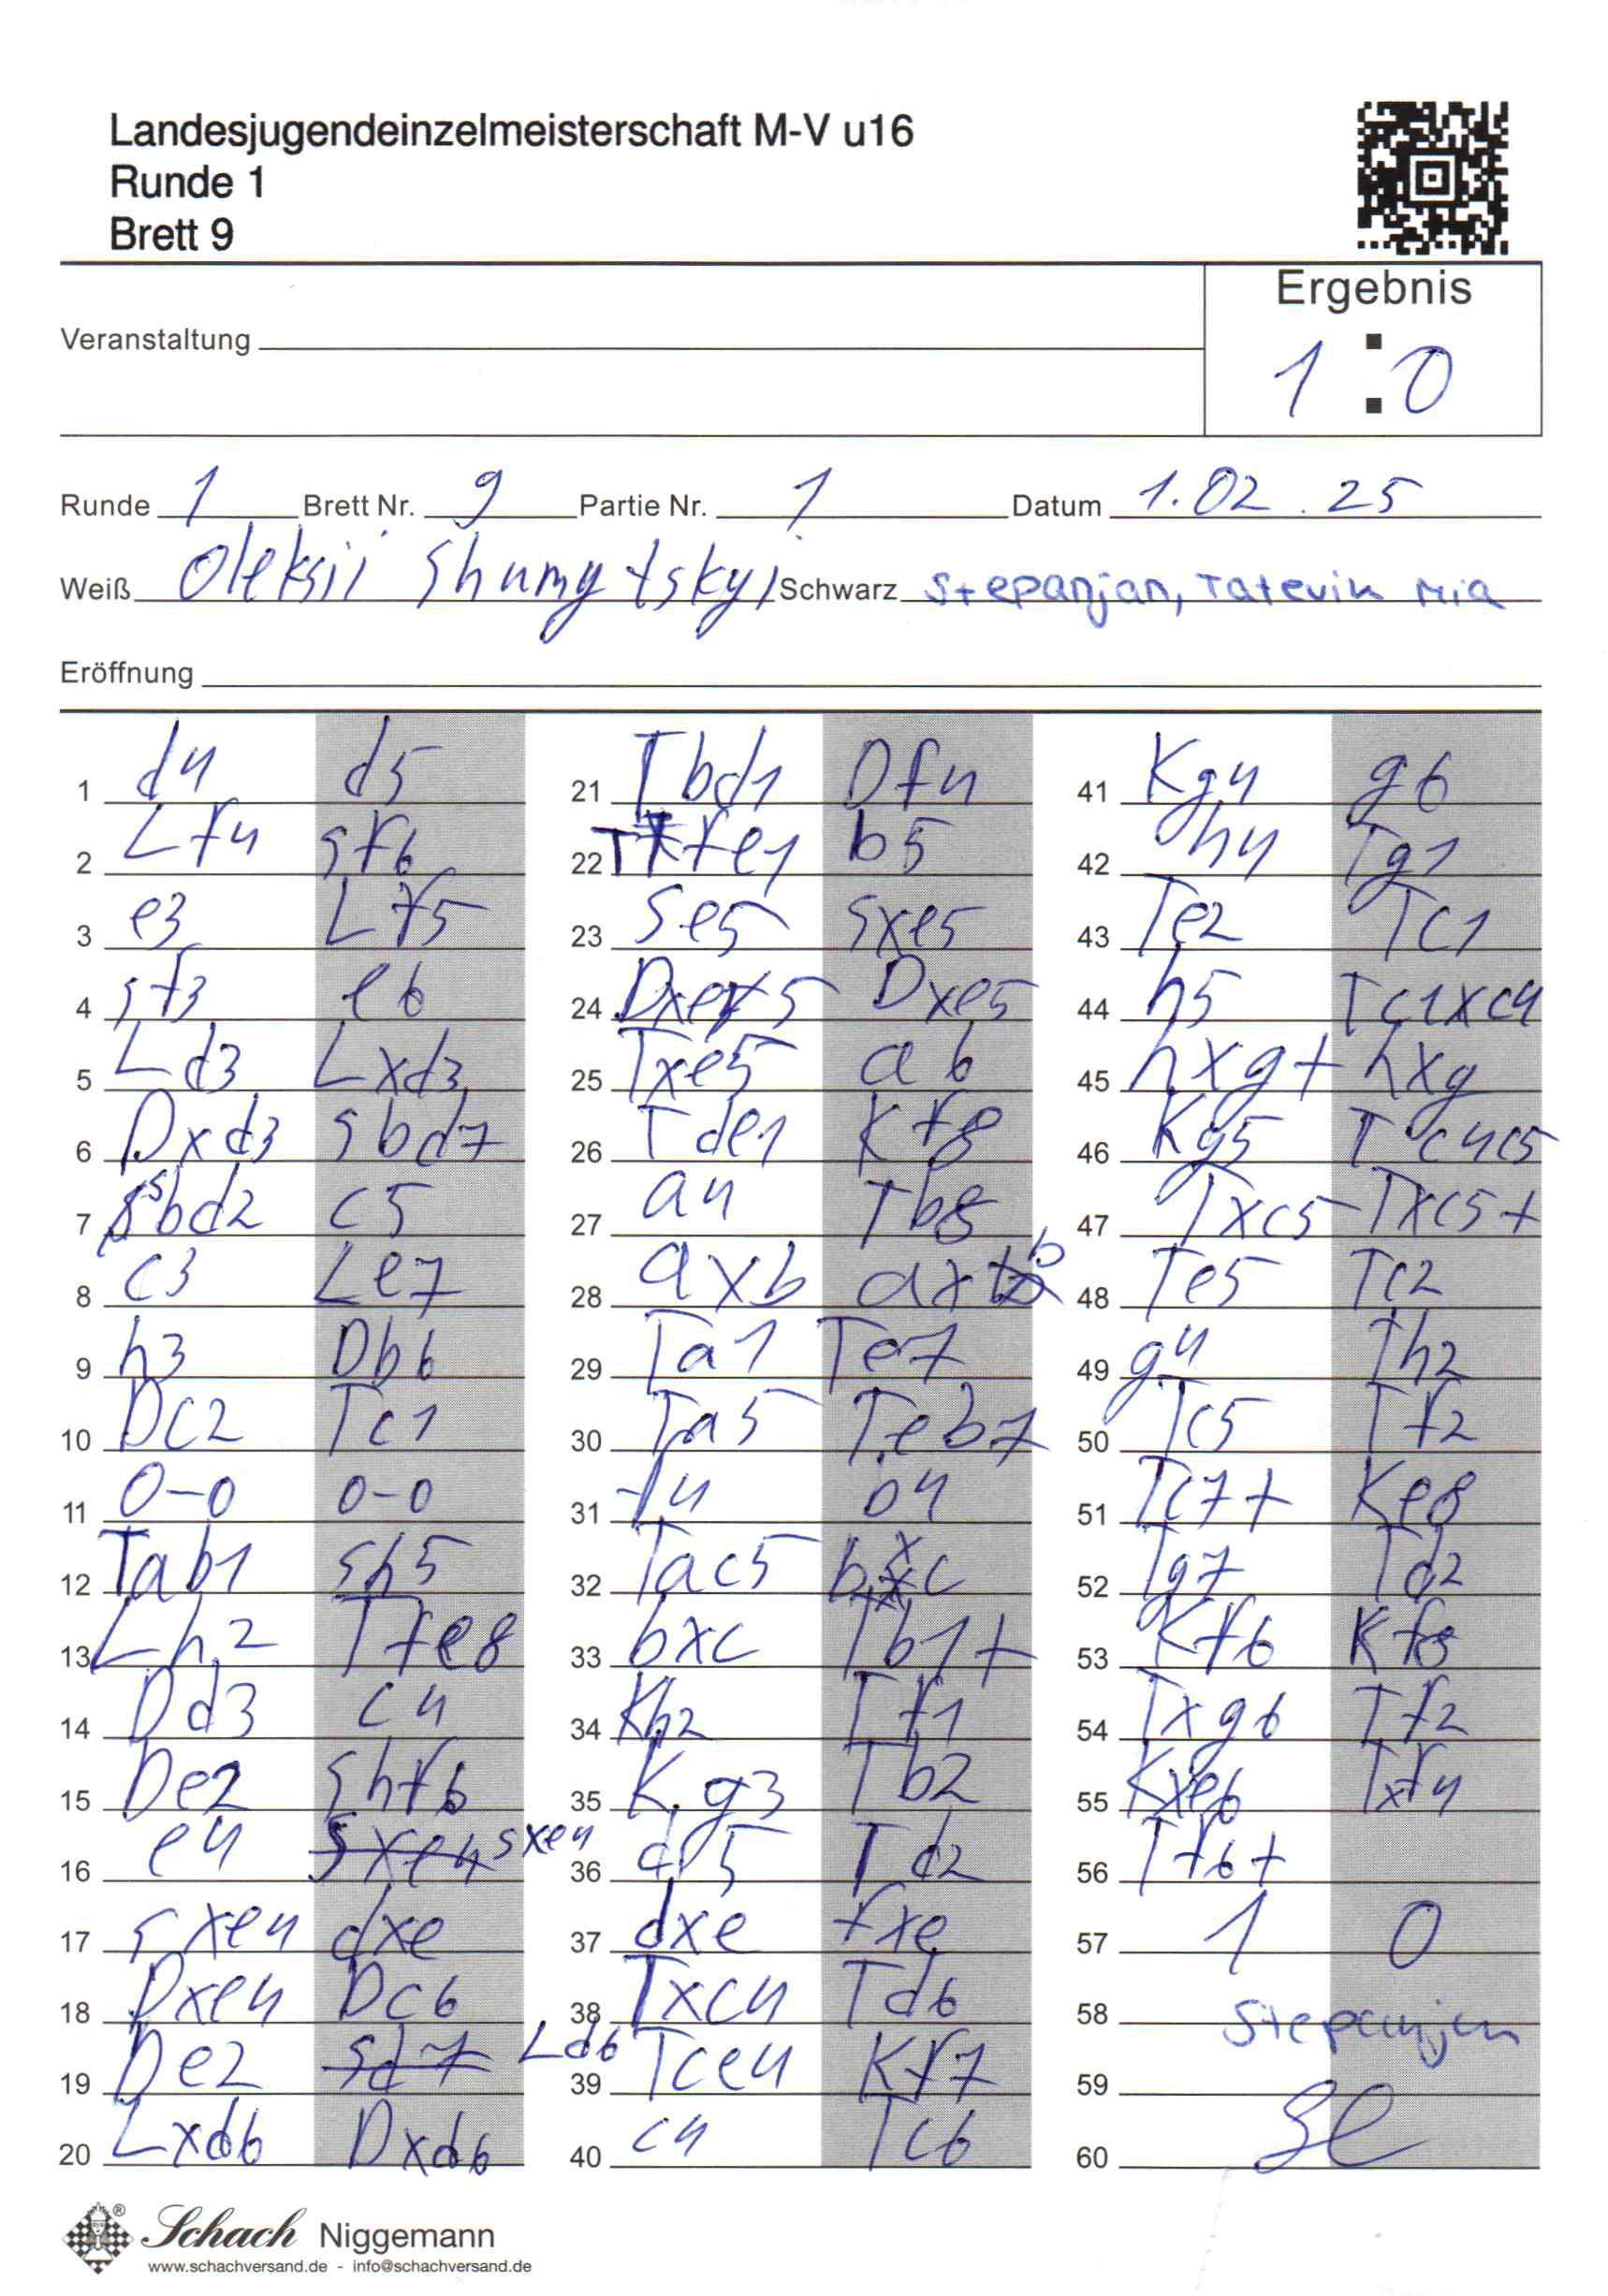 Landesjugendeinzelmeisterschaft M-V u16
Runde 1
Brett 9
Ergebnis
1:0
Veranstaltung
Runde 1 Brett Nr. 9 Partie Nr. 1 Datum 1.02.25
Weiß Oleksii Shumytskyi Schwarz Stepanjan, Tatevik Mia
Eröffnung
1 d4 d5
2 Lf4 Sf6
3 e3 Lf5
4 Sf3 e6
5 Ld3 Lxd3
6 Dxd3 Sbd7
7 Sbd2 c5
8 c3 Le7
9 h3 Db6
10 Dc2 Tc1
11 0-0 0-0
12 Tab1 Sh5
13 Lh2 Tfe8
14 Dd3 c4
15 De2 Shf6
16 e4 Sxe4 Sxe4
17 Sxe4 dxe
18 Dxe4 Dc6
19 De2 Sd7 Ld6
20 Lxd6 Dxd6
21 Tbd1 Df4
22 Tfe1 b5
23 Se5 Sxe5
24 Dxe5 Dxe5
25 Txe5 a6
26 Tde1 Kf8
27 a4 Tb8
28 axb axb
29 Ta1 Te7
30 Ta5 Teb7
31 f4 b4
32 Tac5 bxc
33 bxc Tb1+
34 Kh2 Tf1
35 Kg3 Tb2
36 d5 Td2
37 dxe fxe
38 Txc4 Td6
39 Tce4 Kf7
40 c4 Tc6
41 Kg4 g6
42 h4 Tg1
43 Te2 Tc1
44 h5 Tc1xc4
45 hxg+ hxg
46 Kg5 Tc4c5
47 Txc5 Txc5+
48 Te5 Tc2
49 g4 Th2
50 Tc5 Tf2
51 Tc7+ Ke8
52 Tg7 Td2
53 Kf6 Kf8
54 Txg6 Tf2
55 Kxe6 Txf4
56 Tf6+
57 1 0
58 Stepanjan
59
60
Schach Niggemann
www.schachversand.de - info@schachversand.de